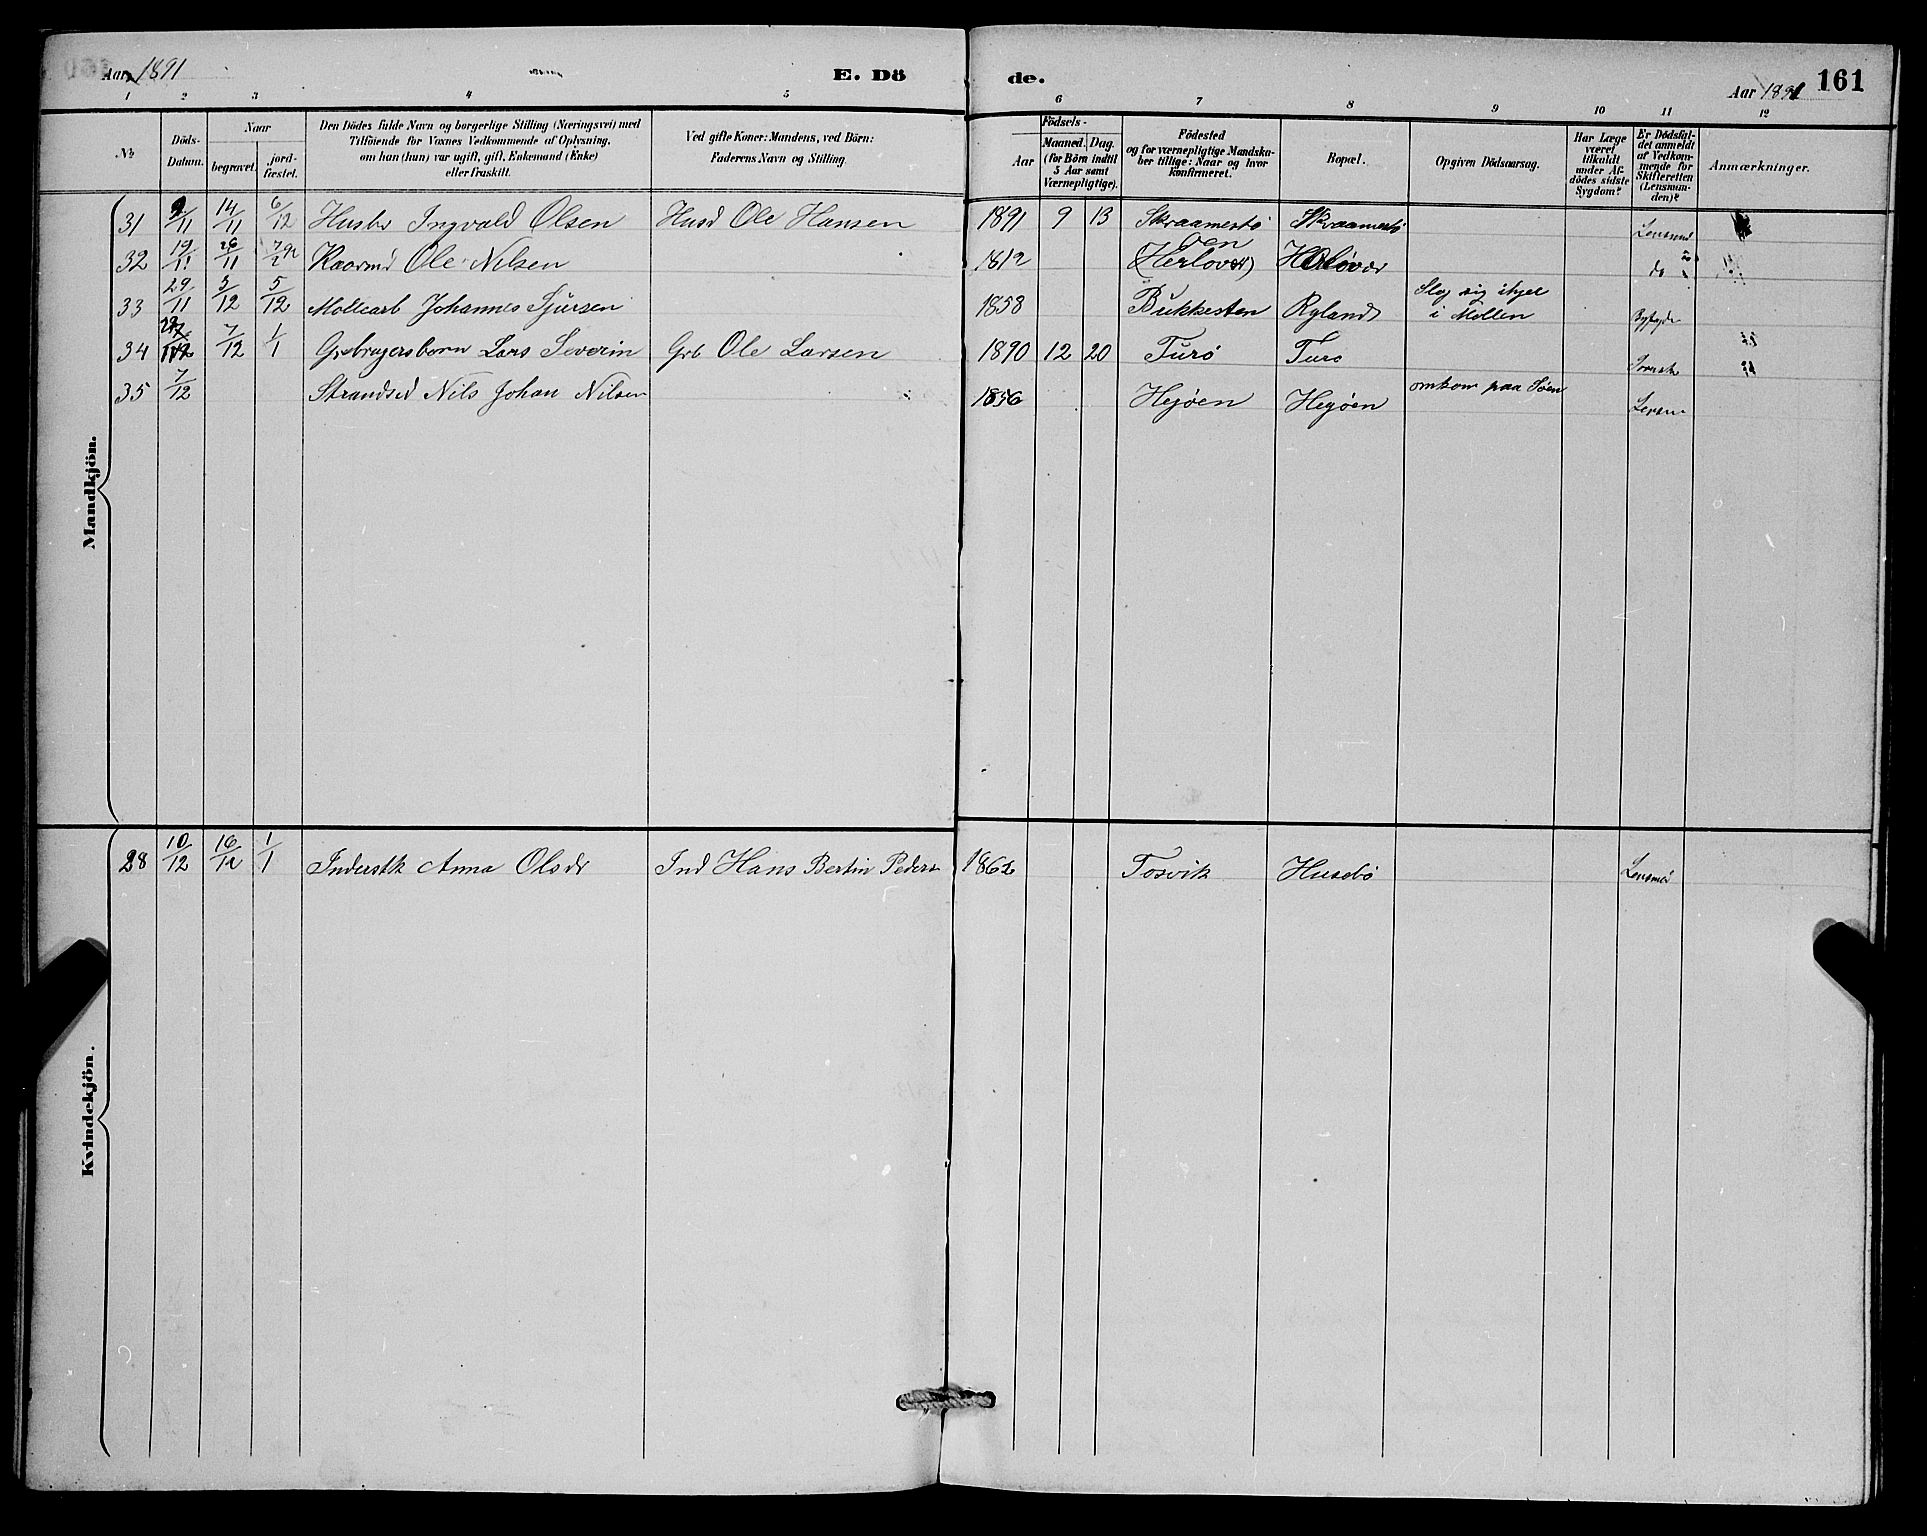 Aar 1891 E. Dö
de. Aar 1891 161
1 2 3 4 5
6 7 8 9 10 11 12
№
Döds-
Datum.
Naar
begravet.
jord-
fæstet.
Den Dödes fulde Navn og borgerlige Stilling (Næringsvei) med
Tilföiende for Voxnes Vedkommende af Oplysning,
om han (hun) var ugift, gift, Enkemand (Enke)
eller fraskilt.
Ved gifte Koner: Mandens, ved Börn:
Faderens Navn og Stilling.
Födsels-
Aar
Maaned. Dag.
(for Börn indtil
5 Aar samt
Værnepligtige).
Födested
og for værnepligtige Mandska-
ber tillige: Naar og hvor
konfirmeret.
Bopæl.
Opgiven Dödsaarsag.
Har Læge
været
tilkaldt
under Af-
dödes sidste
Sygdom?
Er Dödsfal-
det anmeldt
af Vedkom-
mende for
Skifteretten
(Lensman-
den)?
Anmærkninger.
Mandkjön.
31 9/11 14/11 6/12 Husbs Ingvald Olsen Husd Ole Hansen 1891 9 13 Skraamestø Skraamestø Lensmd
32 19/11 26/11 Kaarmd Ole Nilsen 1812 (Herløver) do
33 29/11 5/12 5/12 Mollearb Johannes Sjursen 1858 Bukkesten Ryland Slog sig ihjel
i Mollen
34 7/12 1/1 Grbrugersbarn Lars Severin Grb Ole Larsen 1890 12 20 Turø Turø
35 7/12 Strandsd Nils Johan Nilsen 1856 Hejøen Hegøen omkom paa Søen Lensm
Kvindekjön.
28 10/12 16/12 1/1 Inderstk Anna Olsdr Ind Hans Bertin Peders 1862 Tosvik Husebø Lensmd